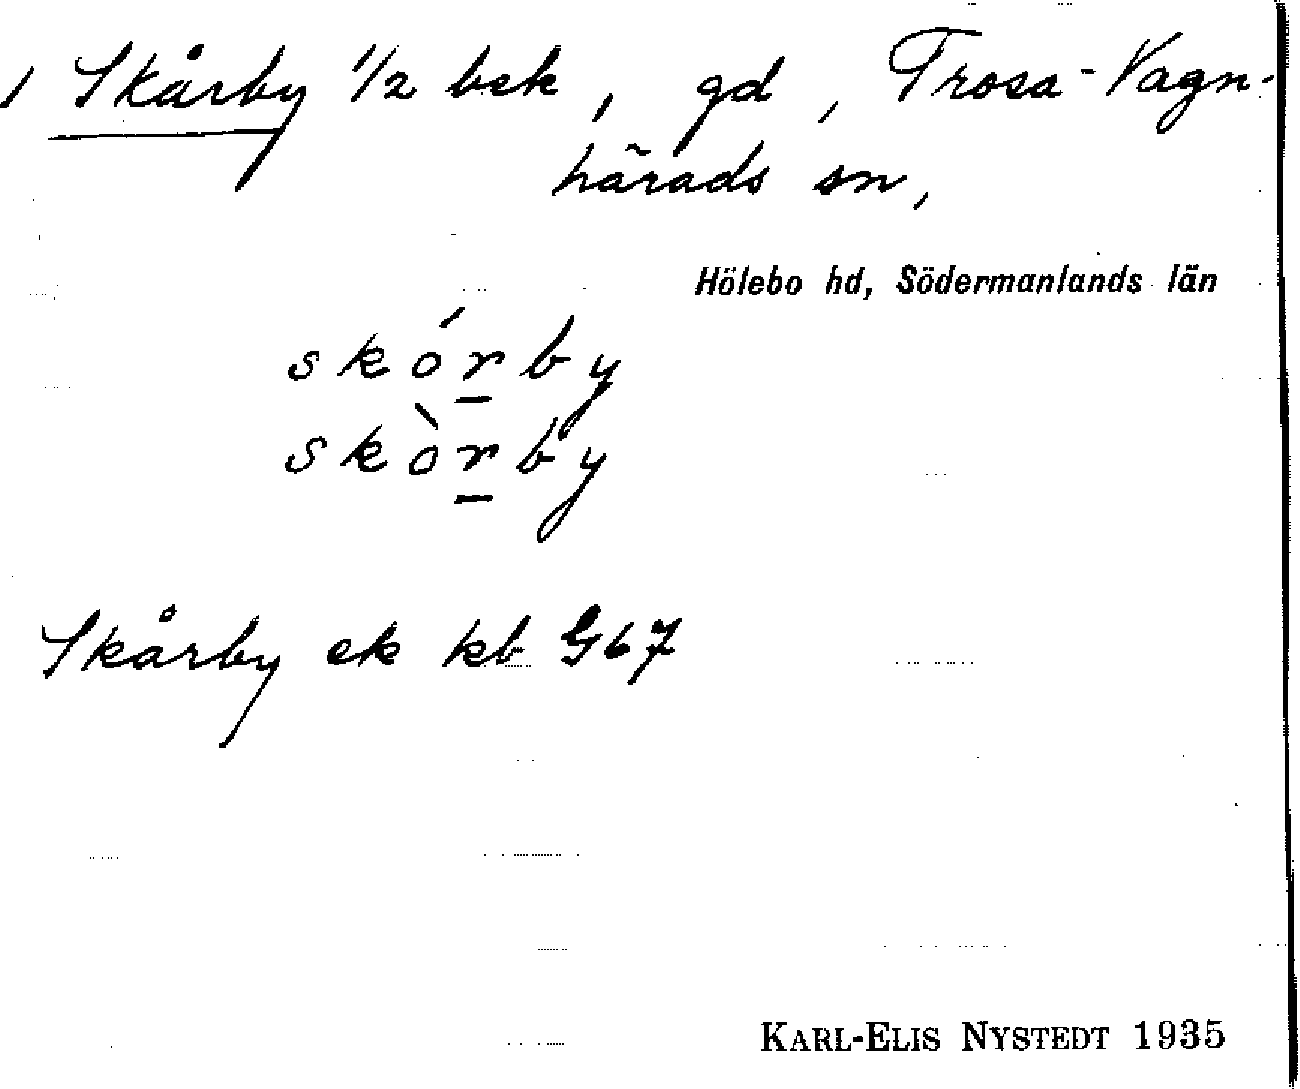 1 Skårby 1/2 bek, gd, Trosa-Vagn-
härads sn,
Hölebo hd, Södermanlands län
skórby
skòrby
Skårby ek kb G67
KARL-ELIS NYSTEDT 1935